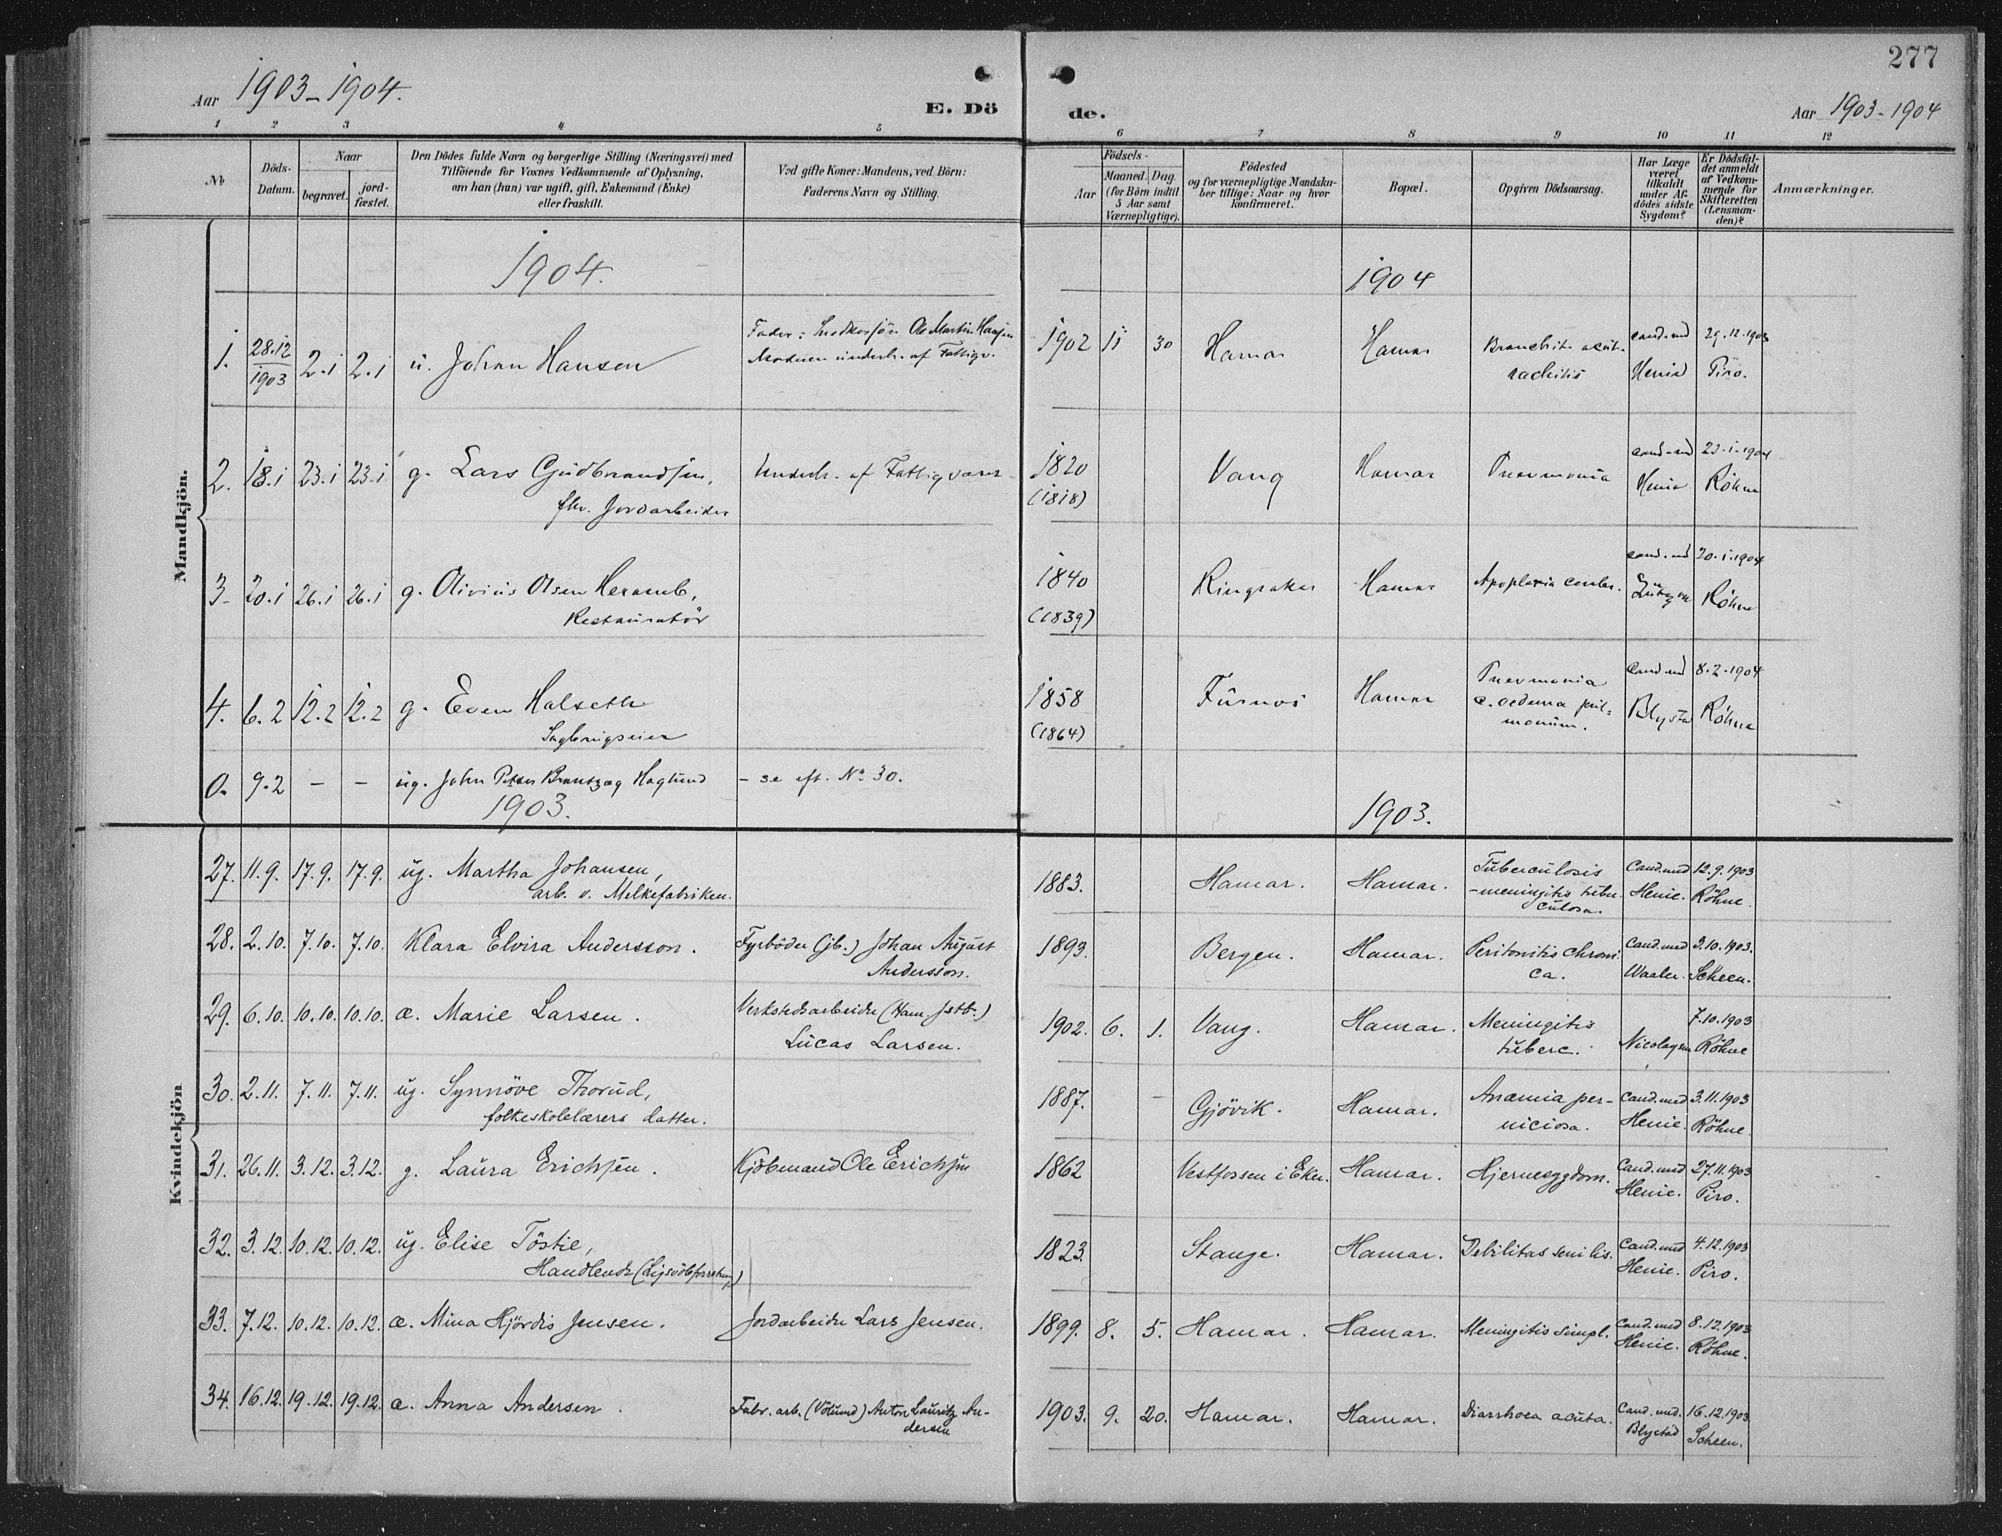 277
Aar 1903-1904.
E. Dö
de.
Aar 1903-1904
1 2 3 4 5 6 7 8 9 10 11 12
№
Döds-
Datum.
Naar
begravet.
jord-
fæstet.
Den Dödes fulde Navn og borgerlige Stilling (Næringsvei) med
Tilföiende for Voxnes Vedkommende af Oplysning,
om han (hun) var ugift, gift, Enkemand (Enke)
eller fraskilt.
Ved gifte Koner: Mandens, ved Börn:
Faderens Navn og Stilling.
Födsels-
Aar
Maaned. Dag.
(for Börn indtil
5 Aar samt
Værnepligtige).
Födested
og for værnepligtige Mandska-
ber tillige: Naar og hvor
konfirmeret.
Bopæl.
Opgiven Dödsaarsag.
Har Læge
været
tilkaldt
under Af-
dödes sidste
Sygdom?
Er Dödsfal-
det anmeldt
af Vedkom-
mende for
Skifteretten
(Lensman-
den)?
Anmærkninger.
Mandkjön.
1904.
1904
1. 28.12 1903 2.1 2.1 u. Johan Hansen
Fader: Ole Martin Hansen
underh. af Fattigv.
1902 11 30 Hamar Hamar Bronchit. acut.
rachitis
cand. md
Henie
29.12.1903
Piro.
2. 18.1 23.1 23.1 g. Lars Gudbrandsen,
fhv. Jordarbeider
Underh. af Fattigvæs.
1820
(1818)
Vang Hamar Pneumonia
cand. md
Henie
23.1.1904
Röhne
3. 20.1 26.1 26.1 g. Olivius Olsen Heramb,
Restauratör
1840
(1839)
Ringsaker Hamar Apoplexia cerebr.
cand. md
20.1.1904
Röhne
4. 6.2 12.2 12.2 g. Even Halseth
Sagbrugseier
1858
(1864)
Furnes Hamar Pneumonia
c. oedema pul-
monum.
cand. md
Blystad
8.2.1904
Röhne
0. 9.2 - - ug. John Petter Brantzæg Haglund - se eft. No 30.
1903.
1903.
Kvindekjön
27. 11.9. 17.9. 17.9. ug. Martha Johansen,
arb. v. Melkefabriken.
1883. Hamar. Hamar. Tuberculosis
-meningitis tuber-
culosa.
Cand. med
Henie.
12.9.1903
Röhne.
28. 2.10. 7.10. 7.10. Klara Elvira Andersson.
Fyrböder (jb.) Johan August
Andersson.
1893. Bergen. Hamar. Peritonitis chroni-
ca.
Cand. med
Waaler.
3.10.1903.
Scheen.
29. 6.10. 10.10. 10.10. æ. Marie Larsen.
Verkstedsarbeider (Ham. Jstb.)
Lucas Larsen.
1902. 6. 1. Vang. Hamar. Meningitis
tuberc.
Nicolaysen
7.10.1903
Röhne
30. 2.11. 7.11. 7.11. ug. Synnöve Thorud,
folkeskolelærers datter.
1887. - Gjövik. Hamar. Anæmia per-
niciosa.
Cand. med
Henie.
3.11.1903
Röhne.
31. 26.11. 3.12. 3.12. g. Laura Erichsen.
Kjöbmand Ole Erichsen
1862 Vestfossen i Eker. Hamar. Hjernesygdom.
Cand. med
Henie.
27.11.1903
Piro.
32. 3.12. 10.12. 10.12. ug. Elise Töstie,
Handlende
1823. Stange. Hamar. Debilitas senilis.
Cand. med
Henie.
4.12.1903
Piro.
33. 7.12. 10.12. 10.12. æ. Mina Hjördis Jensen.
Jordarbeider Lars Jensen.
1899. 8. 5. Hamar. Hamar. Meningitis simpl.
Cand. med
Henie.
8.12.1903
Röhne.
34. 16.12. 19.12. 19.12. æ. Anna Andersen.
Fabr. arb. (Völund) Anton Lauritz An-
dersen
1903. 9. 20. Hamar. Hamar. Diarrhoea acuta.
Cand. md.
Blystad
16.12.1903
Scheen.